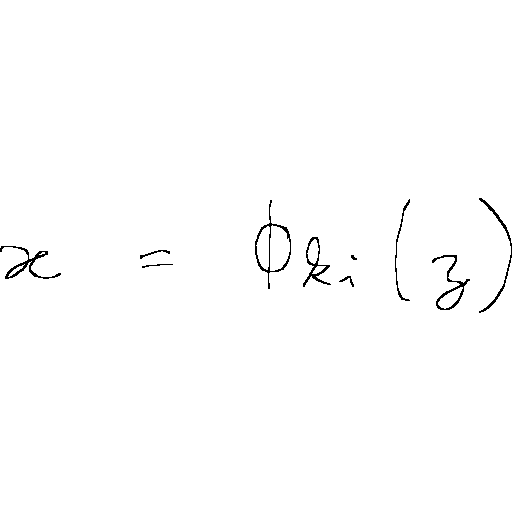 x = ϕ_{ki}(z)